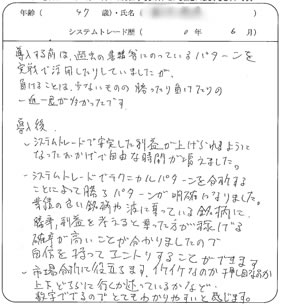 年齢( 47 歳)・氏名( )
システムトレード歴( 0 年 6 月)
導入する前は、過去の書籍等にのっているパターンを
実戦で活用したりしていましたが、
負けることは、少ないものの 勝ったり負けたりの
一進一退が多かったです。
導入後
・システムトレードで安定した利益が上げられるように
なったおかげで自由な時間が増えました。
・システムトレードでテクニカルパターンを分析する
ことによって勝るパターンが明確になりました。
の銘柄や波に乗っている銘柄に
勝率、利益を考えると乗った方が稼げる
確率が高いことが分かりましたので
自信を持ってエントリすることができます。
・市場分析に役立ちます。イケイケなのか押し目なのか
上下どちらに行くか迷っているかなど、
数字ででるのでとてもわかりやすいと感じます。